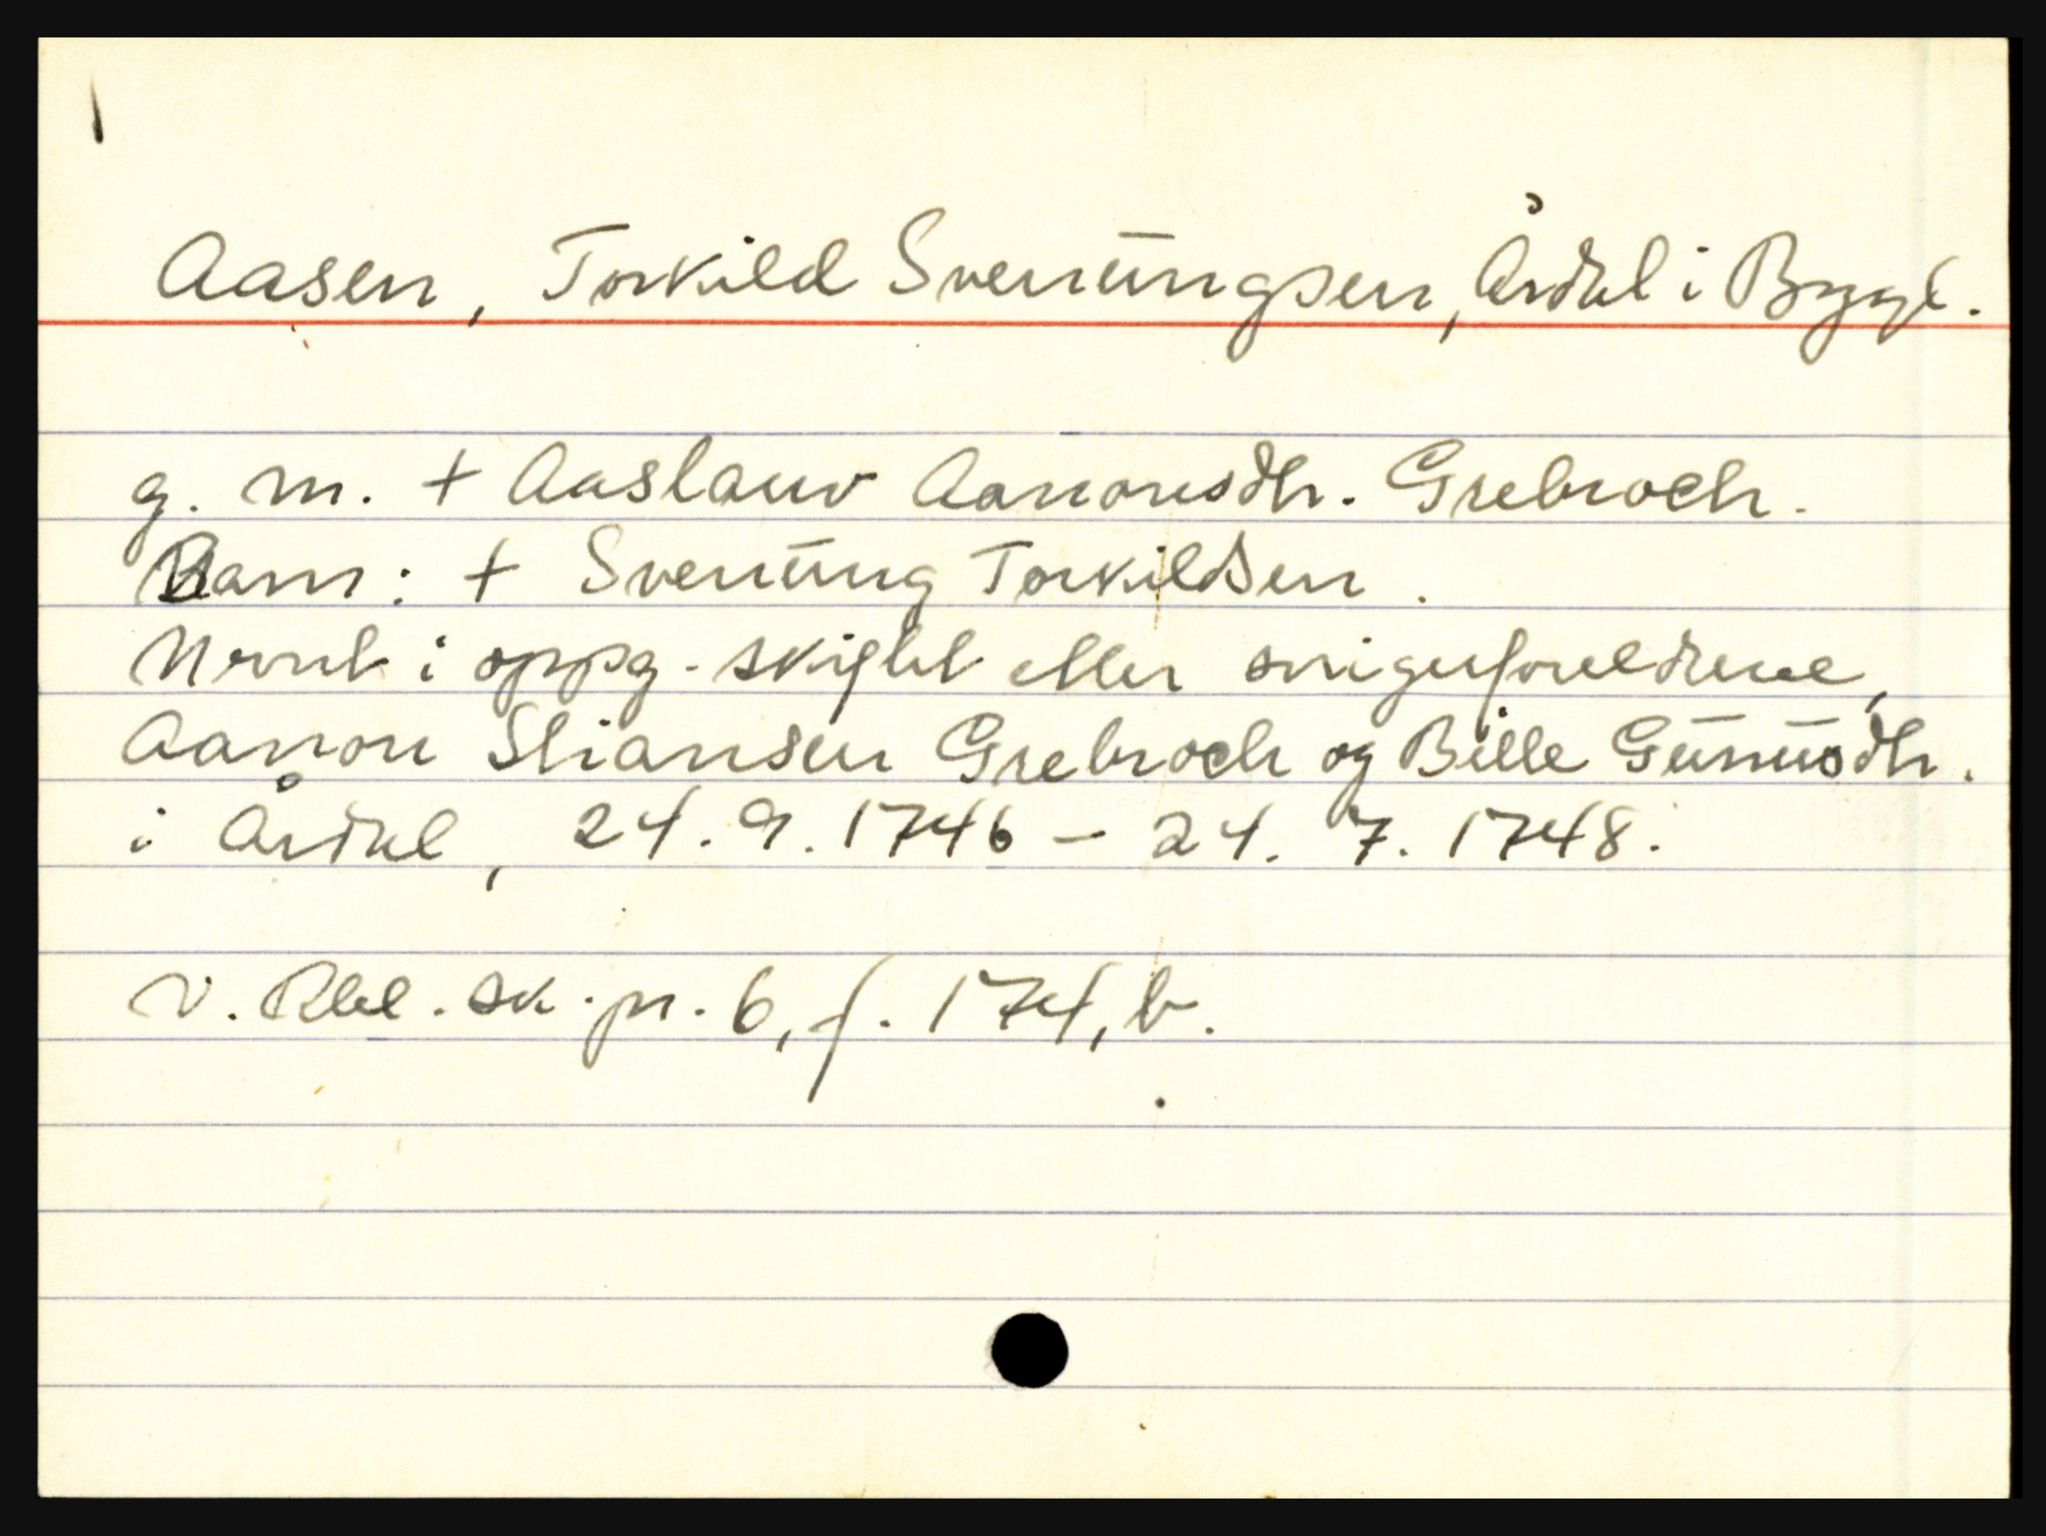 Aasen, Torkild Svenūngsen, Årdal i Bygl.
g. m. + Aaslauv Aanonsdtr. Grebroch.
Barn: + Svenūng Torkildsen.
Nevnt i oppg. skiftet etter svigerforeldrene,
Aanon Stiansen Grebroch og Bille Gūnūsdtr.
i Årdal, 24. 9. 1746 – 24. 7. 1748.
V. Rbl. sk. pr. 6, f. 174, b.